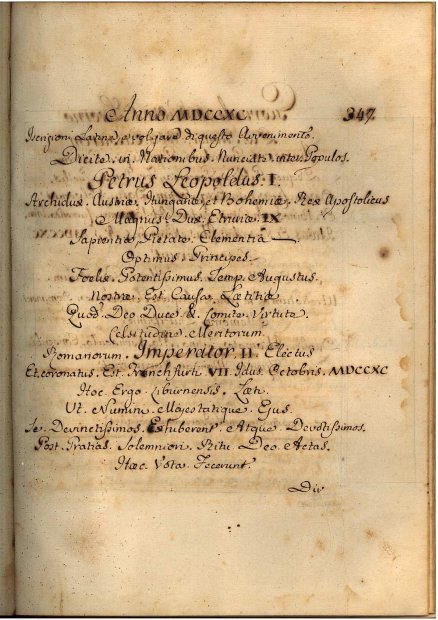 Anno MDCCXC. 347.
Iscrizioni Latina e volgare di questo Avvenimento.
Dicite. in. Nationibus. Nunciate. inter. Populos.
Petrus Leopoldus. I.
Archidux. Austriæ, Hungariæ, et Bohemiæ, Rex Apostolicus
Magnus. Dux. Etruriæ IX
Sapientia, Pietate, Clementia
Optimus. Princeps.
Foelix. Potentissimus. Semp. Augustus.
Nostræ. Est. Causa. Lætitiæ
Quod. Deo Duce & Comite. Virtute
Celsitudine. Meritorum.
Romanorum. Imperator II. Electus
Et. coronatus. Est. Francfurti VII Idus. Octobris. MDCCXC
Hoc. Ergo. Liburnenses. Læti.
Ut. Numini. Majestatique. Ejus.
Se. Devinctissimos. Exhiberent. Atque. Devotissimos.
Post. Gratias. Solemniori. Ritu. Deo. Actas.
Hæc. Vota. Fecerunt.